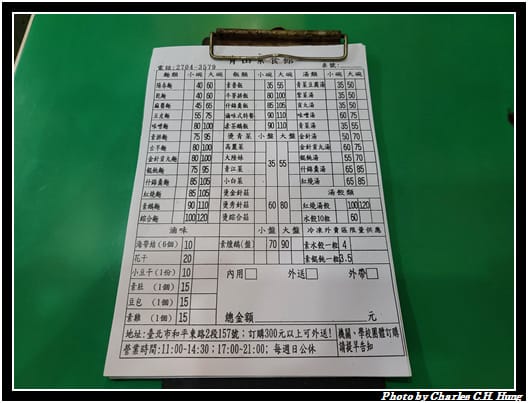 青山素食館
電話:2704-3579 桌號:
麵類 小碗 大碗 飯類 小碗 大碗 湯類 小碗 大碗
陽春麵 40 60 素魯飯 35 55 青菜豆腐湯 35 50
乾麵 40 60 80 100 紫菜湯 35
麻醬麵 45 65 什錦燴飯 85 105 貢丸湯 35 50
豆皮麵 55 75 滷味式特餐 90 110 味噌湯 60 75
味噌麵 80 100 素茶鵝飯 90 110 青菜湯 35 55
75 95 燙青菜 小盤 大盤 金針湯 50 70
80 100 高麗菜 35 55 金針貢丸湯 60 75
金針貢丸麵 80 100 大陸妹 餛飩湯 55 70
餛飩麵 75 95 青江菜 什錦羹湯 65 85
什錦羹麵 85 105 小白菜 紅燒湯 65 85
紅燒麵 85 105 燙金針菇 60 80 湯餃類
素鵝麵 90 110 燙秀針菇 紅燒湯餃 100 120
綜合麵 100 120 燙綜合菇 水餃10粒 60
滷味 小盤 大盤 冷凍外賣區限量供應
海帶結(6個) 10 素燒鵝(盤) 70 90 素水餃一粒 4
花干 20 素餛飩一粒 3.5
小豆干(1份) 10 內用 外送 外帶
素肚 (1個) 15
豆包 (1個) 15
素雞 (1個) 15 總金額 元
地址:臺北市和平東路2段157號;訂購300元以上可外送! 機關、學校團體訂購
營業時間:11:00-14:30;17:00-21:00;每週日公休 請提早告知
Photo by Charles C.H. Hung